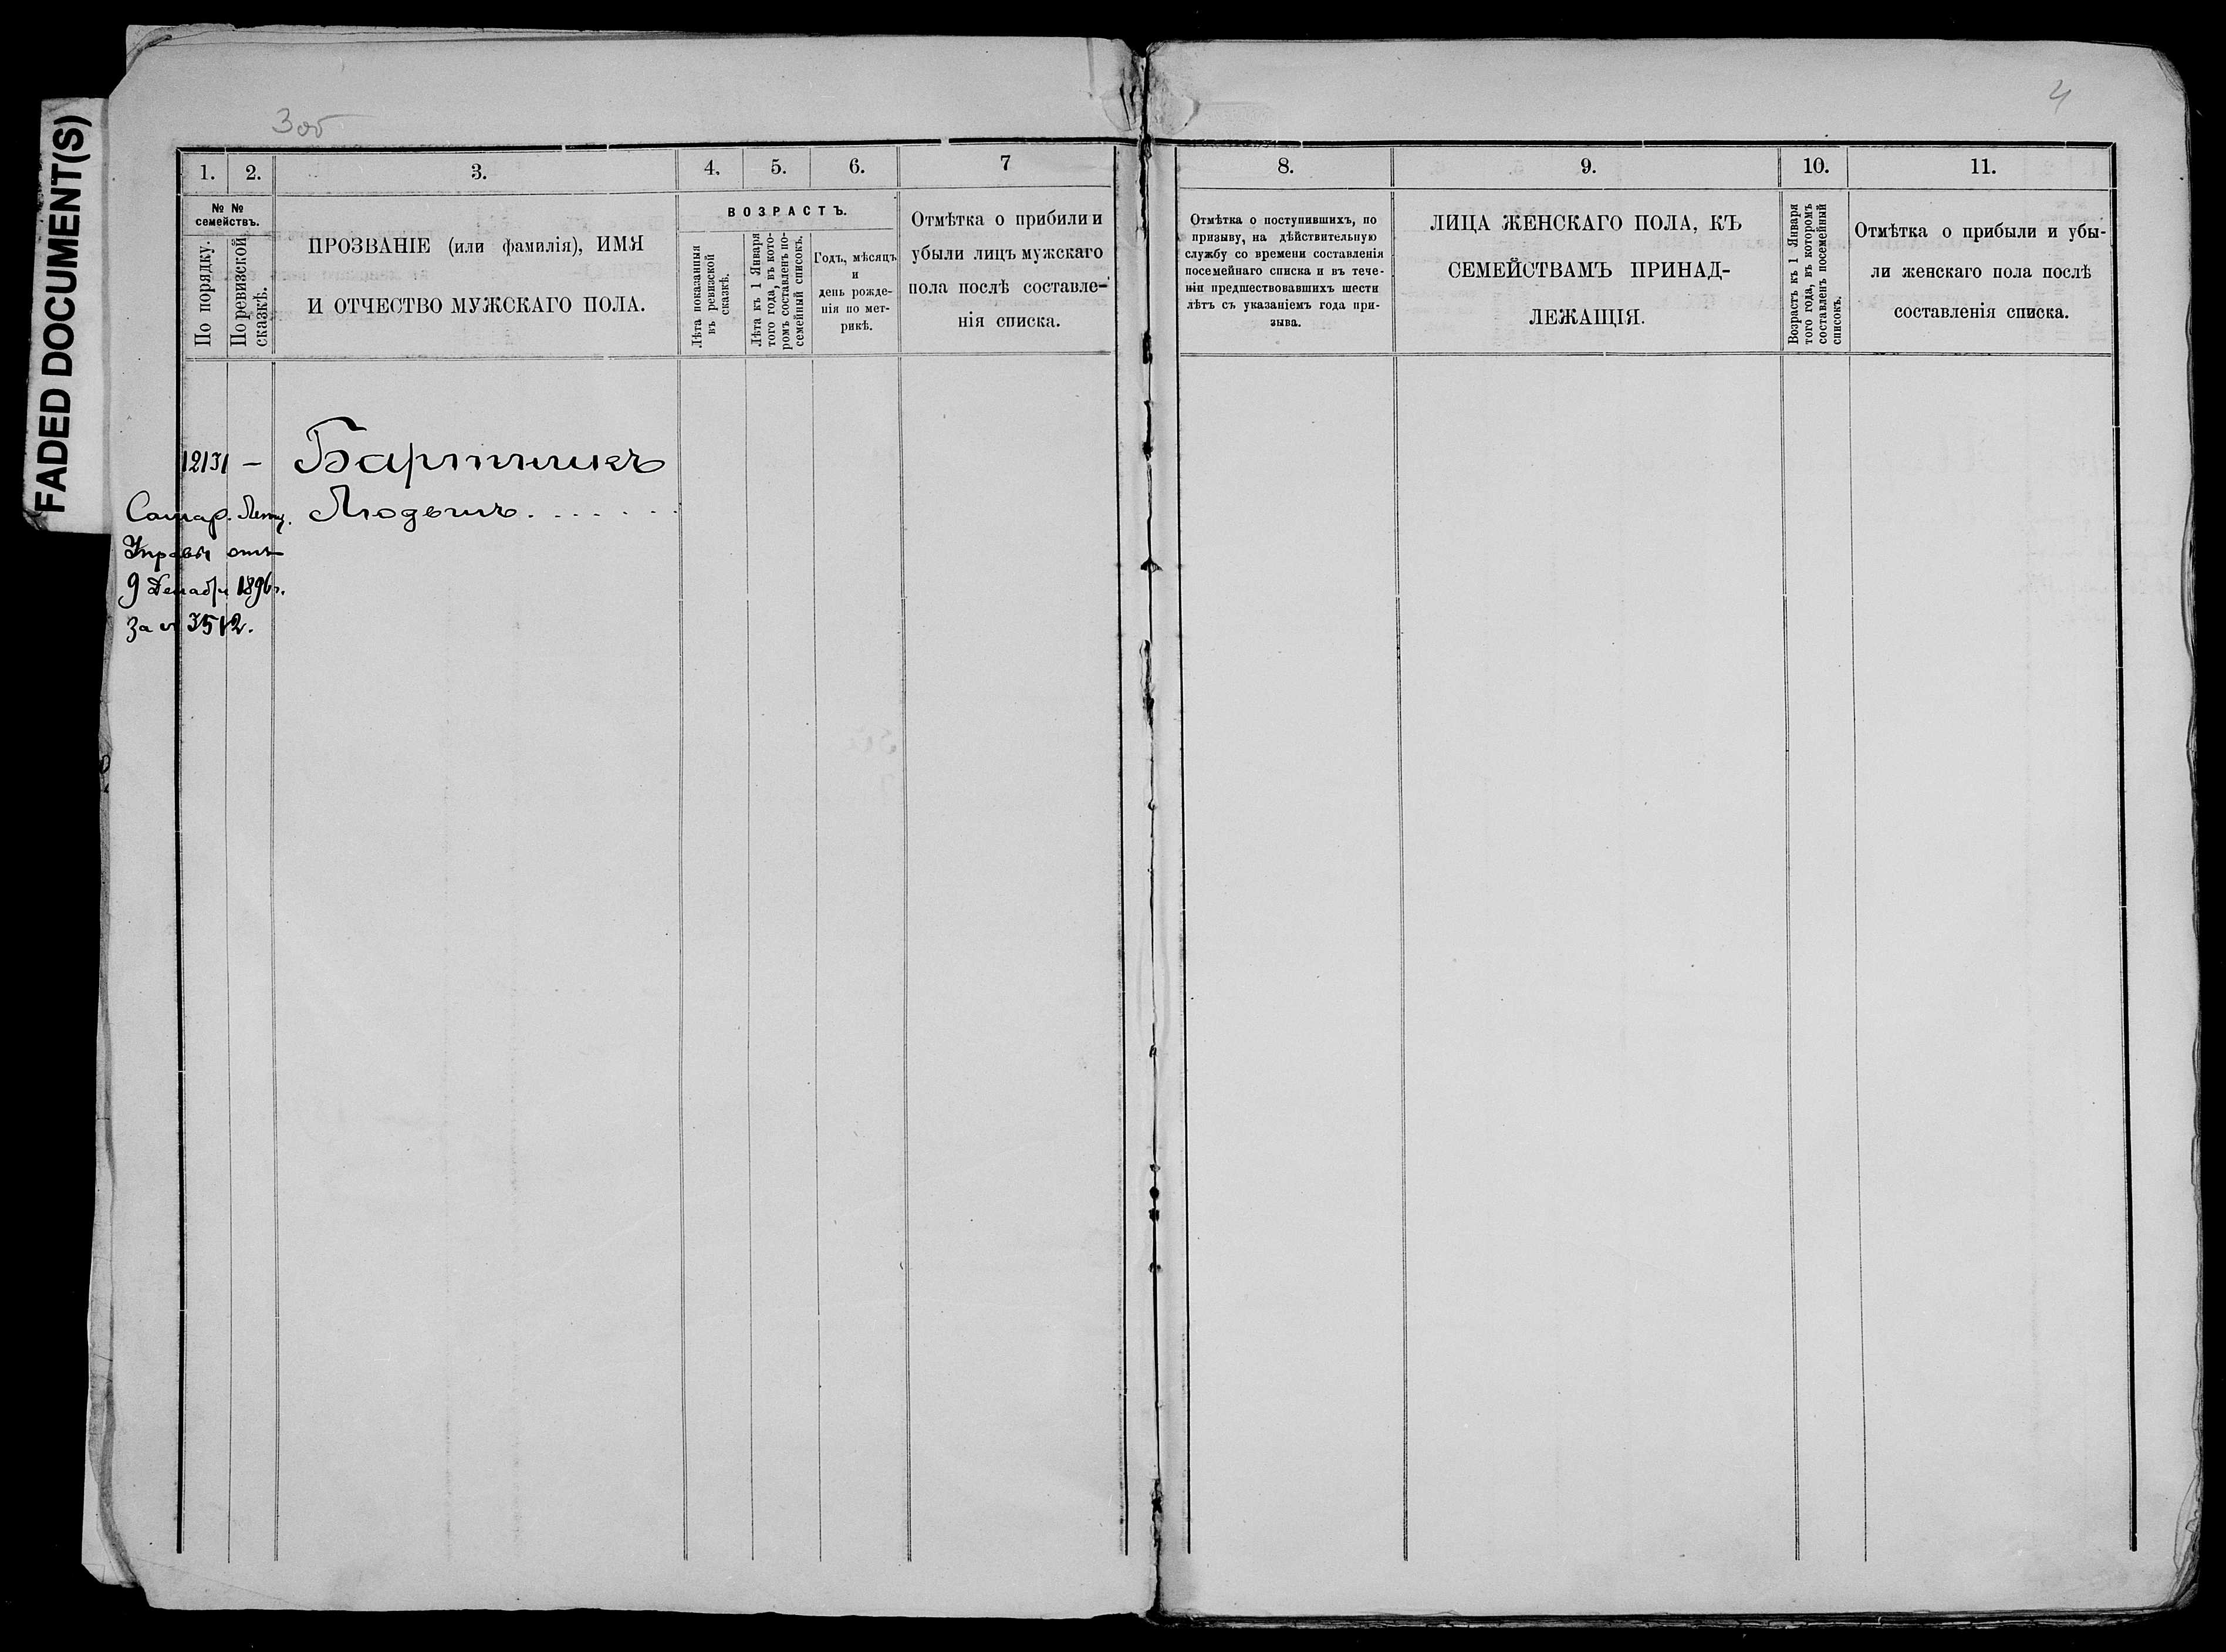 FADED DOCUMENT(S)
3 об
4
1.
2.
3.
4.
5.
6.
7
№ №
семействъ.
По порядку.
По ревизской
сказкѣ.
ПРОЗВАНІЕ (или фамилія), ИМЯ
И ОТЧЕСТВО МУЖСКАГО ПОЛА.
ВОЗРАСТЪ.
Лѣта показанныя
въ ревизской
сказкѣ.
Лѣта къ 1 Января
того года, въ кото-
ромъ составленъ по-
семейный списокъ.
Годъ, мѣсяцъ
и
день рожде-
нія по мет-
рикѣ.
Отмѣтка о прибили и
убыли лицъ мужскаго
пола послѣ составле-
нія списка.
8.
9.
10.
11.
Отмѣтка о поступившихъ, по
призыву, на дѣйствительную
службу со времени составленія
посемейнаго списка и въ тече-
ніи предшествовавшихъ шести
лѣтъ съ указаніемъ года при-
зыва.
ЛИЦА ЖЕНСКАГО ПОЛА, КЪ
СЕМЕЙСТВАМЪ ПРИНАД-
ЛЕЖАЩІЯ.
Возрастъ къ 1 Января
того года, въ которомъ
составленъ посемейный
списокъ.
Отмѣтка о прибыли и убы-
ли женскаго пола послѣ
составленія списка.
12131 –
Людвигъ . . . . . . .
Управы отъ
9 Декабря 1896 г.
за № 3512.